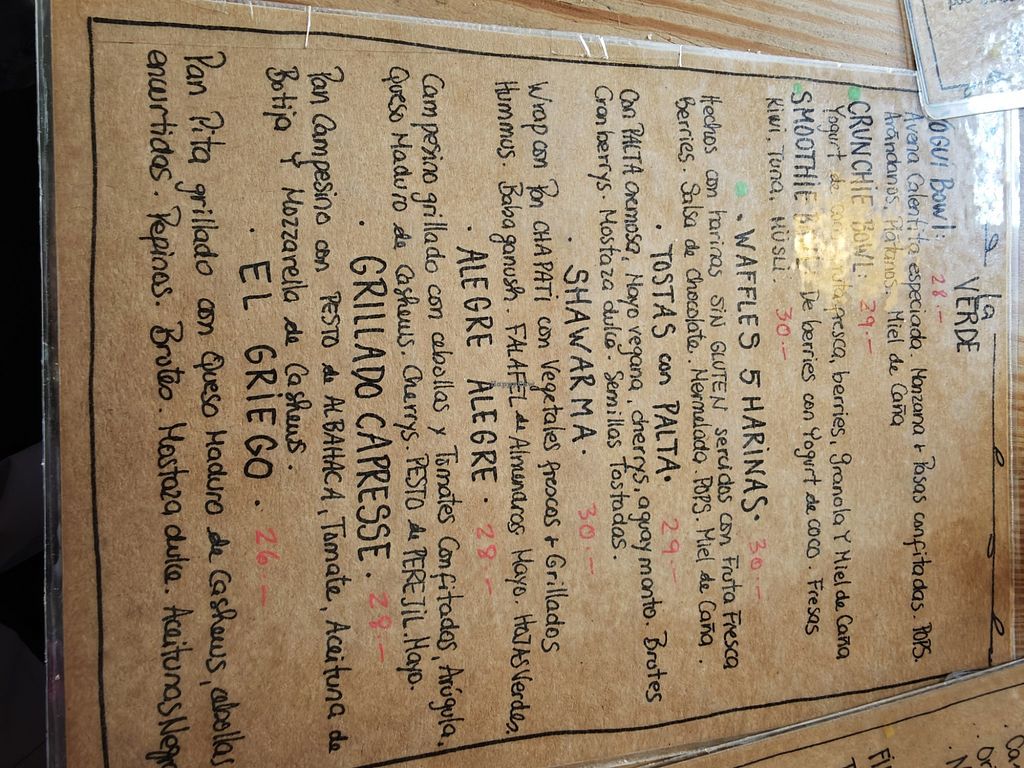 La
VERDE
YOGUI BOWL: 28.-
Avena Calentita especiada. Manzana + Pasas confitadas. POPS.
Arándanos. Plátanos. Miel de Caña
CRUNCHIE BOWL: 29.-
Yogurt de fresca, berries, Granola Y Miel de Caña
SMOOTHIE De berries con Yogurt de coco. Fresas
Kiwi, Tuna, MUSLI. 30.-
. WAFFLES 5 HARINAS. 30.-
Hechos con harinas SIN GLUTEN servidos con Fruta Fresca
Berries. Salsa de chocolate. Mermelada. POPS. Miel de Caña.
. TOSTAS con PALTA. 29.-
Con PALTA cremosa, Mayo vegana, cherrys, aguaymanto. Brotes
Cranberrys. Mostaza dulce. Semillas Tostadas.
. SHAWARMA. 30.-
Wrap con Pan CHAPATI con Vegetales frescos + Grillados
Hummus. Babaganush. FALAFEL de Almendras Mayo. HOJAS Verdes.
. ALEGRE ALEGRE. 28.-
Campesino grillado con cebollas y Tomates Confitados, Arúgula,
Queso Maduro de Cashews. Cherrys. PESTO de PEREJIL. Mayo.
. GRILLADO CAPRESSE. 28.-
Pan Campesino con PESTO de ALBAHACA, Tomate, Aceituna de
Botija y Mozzarella de Cashews.
. EL GRIEGO. 26.-
Pan Pita grillado con Queso Maduro de Cashews, cebollas
encurtidas. Pepinos. Brotes. Mostaza dulce. Aceitunas Negr